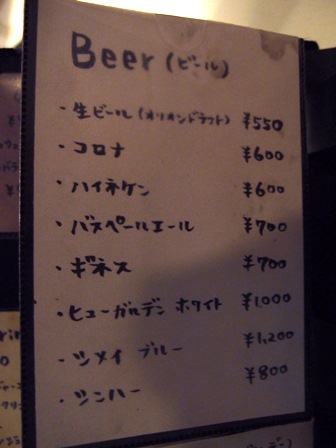 Beer (ビール)
・生ビール (オリオンドラフト) ¥550
・コロナ ¥600
・ハイネケン ¥600
・バスペールエール ¥700
・ギネス ¥700
・ヒューガルデン ホワイト ¥1,000
・シメイ ブルー ¥1,200
・シンハー ¥800